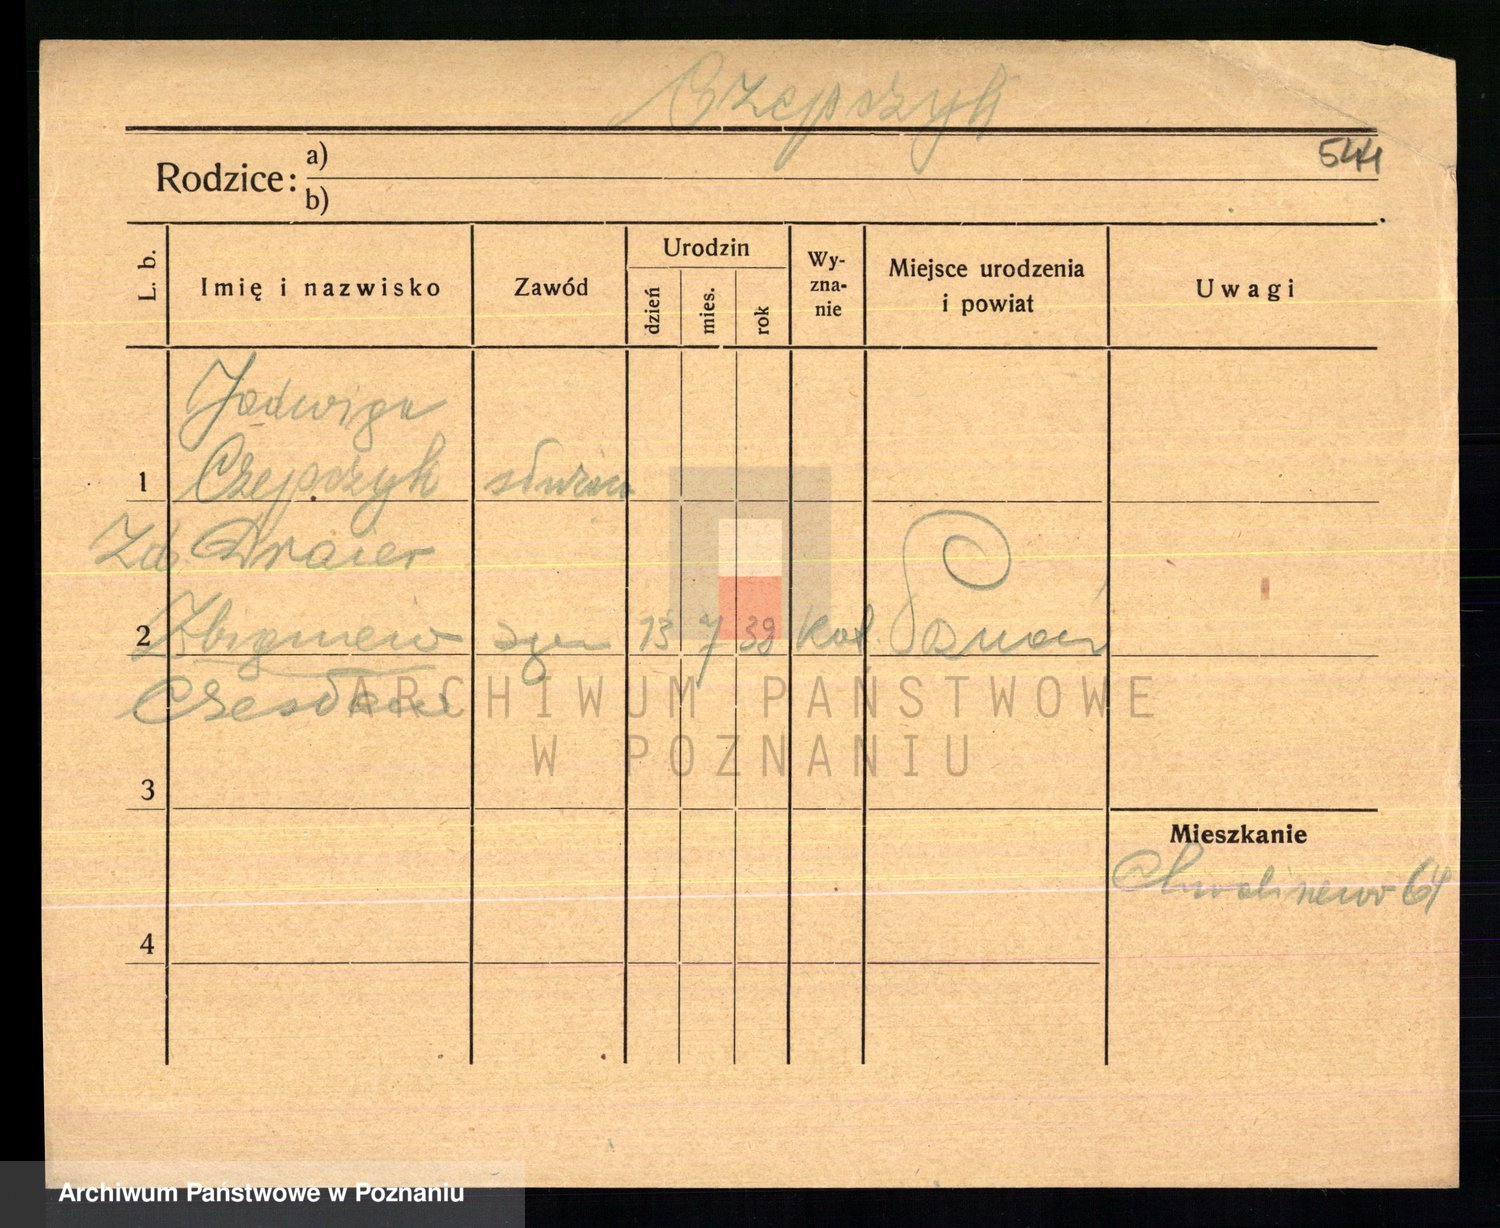 Czepczyk
544
Rodzice: a)
b)
L. b.
Imię i nazwisko
Zawód
Urodzin
dzień
mies.
rok
Wy-
zna-
nie
Miejsce urodzenia
i powiat
Uwagi
Jadwiga
1 Czepczyk
Draier
2 Zbigniew syn 13 7 39 kat. Poznań
Czesław
3
4
Mieszkanie
64
ARCHIWUM PAŃSTWOWE
W POZNANIU
Archiwum Państwowe w Poznaniu